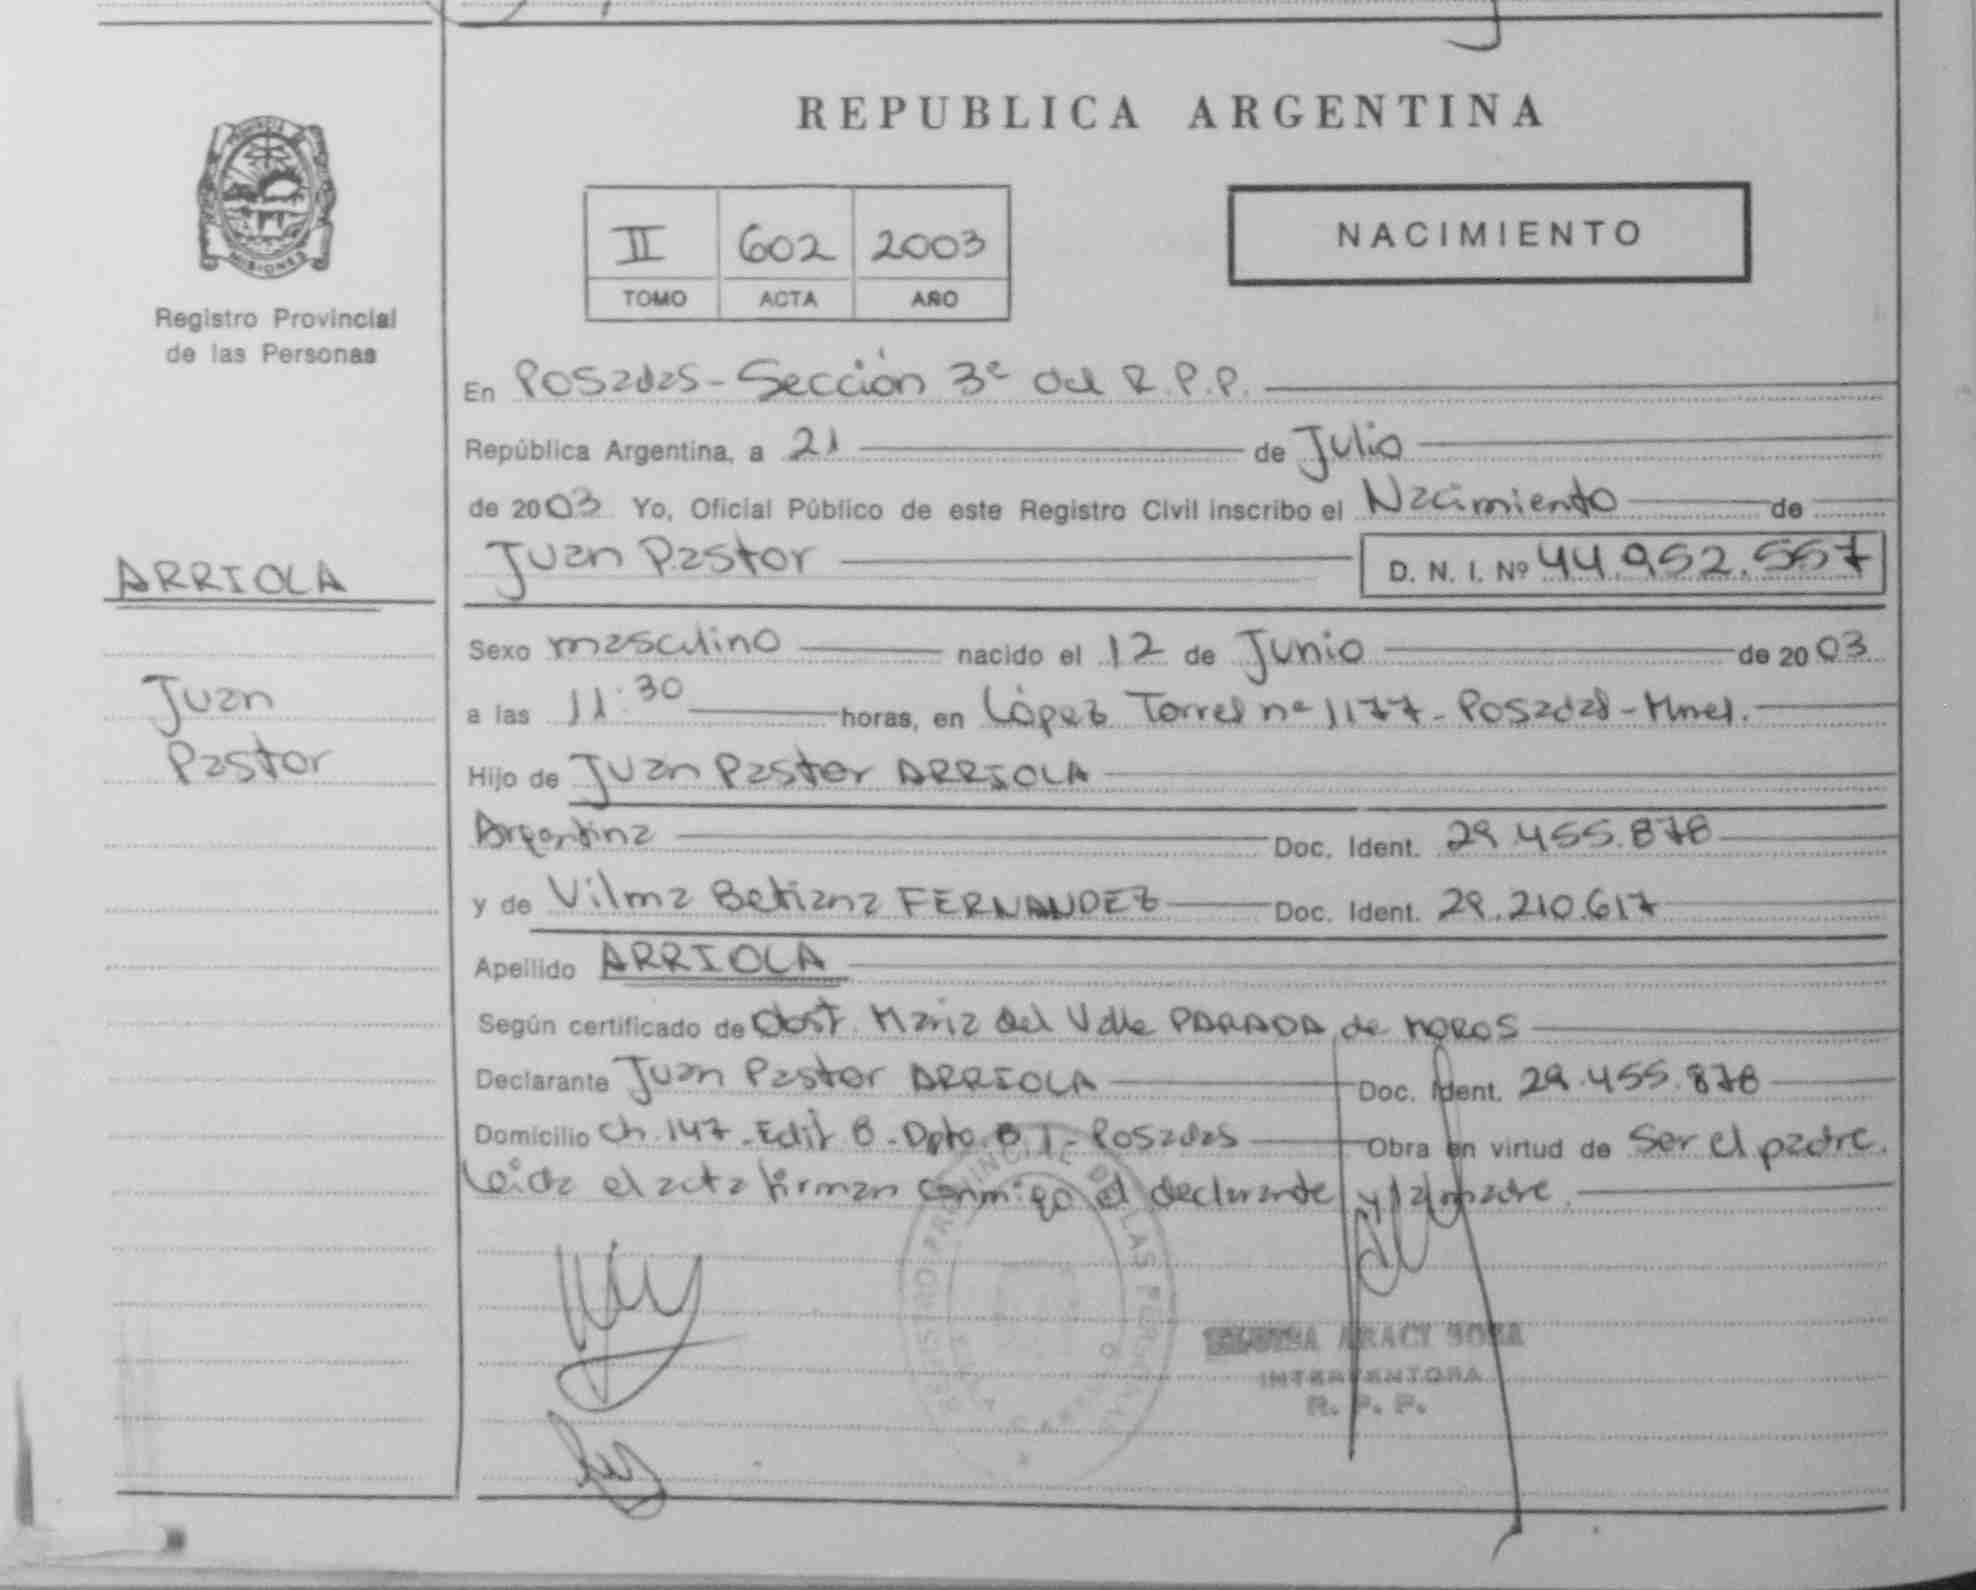 REPUBLICA ARGENTINA
PROVINCIA DE MISIONES
Registro Provincial
de las Personas
II 602 2003
TOMO ACTA AÑO
NACIMIENTO
En Posadas - Sección 3ª del R.P.P.
República Argentina, a 21 de Julio
de 2003 Yo, Oficial Público de este Registro Civil inscribo el Nacimiento de
Juan Pastor D. N. I. Nº 44.952.557
ARRIOLA
Juan
Pastor
Sexo masculino nacido el 12 de Junio de 2003
a las 11:30 horas, en López Torres nº 1177 - Posadas - Mnes.
Hijo de Juan Pastor ARRIOLA
Argentina Doc. Ident. 29.455.878
y de Vilma Betiana FERNANDEZ Doc. Ident. 29.210.617
Apellido ARRIOLA
Según certificado de Obst. Maria del Valle PARADA de MOROS
Declarante Juan Pastor ARRIOLA Doc. Ident. 29.455.878
Domicilio Ch. 147 - Edif 8 - Dpto. B 1 - Posadas Obra en virtud de Ser el padre.
Leida el acta firman conmigo el declarante y la madre.
REGISTRO PROVINCIAL DE LAS PERSONAS
ARACY SOSA
INTERVENTORA
R. P. P.